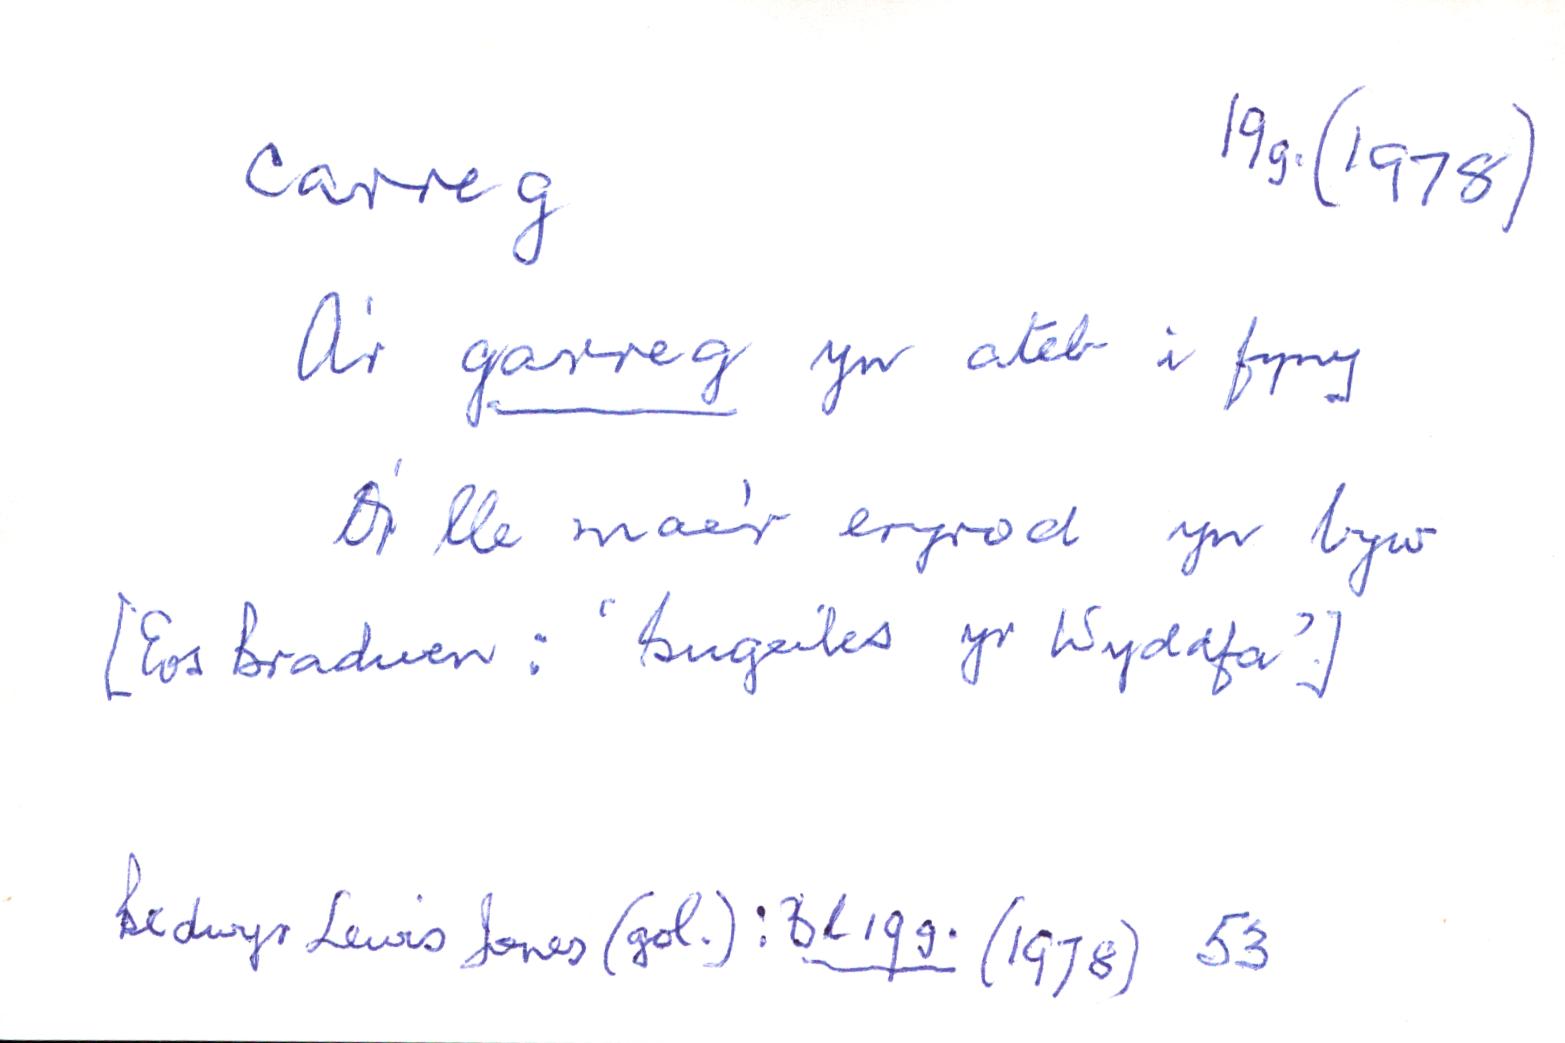 carreg 19g. (1978)
A'r garreg yn ateb i fyny
O'r lle mae'r eryrod yn byw
[Eos Bradwen: 'Bugeiles yr Wyddfa'.]
Bedwyr Lewis Jones (gol.): Bl 19g. (1978) 53